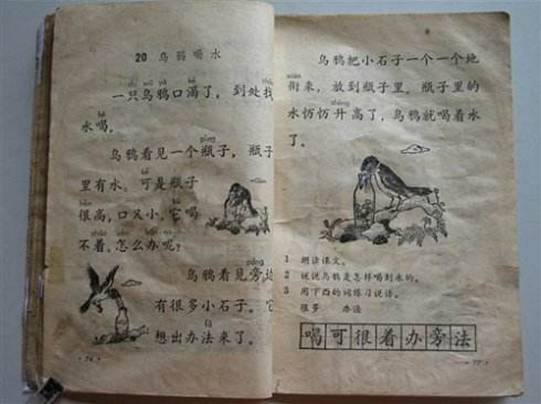 20 乌鸦喝水
一只乌鸦口渴了，到处找
水喝。
乌鸦看见一个瓶子，瓶子
里有水。可是瓶子
很高，口又小，它喝
不着，怎么办呢？
乌鸦看见旁边
有很多小石子。它
想出办法来了。
乌鸦把小石子一个一个地
衔来，放到瓶子里。瓶子里的
水升高了，乌鸦就喝着水
了。
1 朗读课文。
2 说说乌鸦是怎样喝到水的。
3 用下面的词练习说话。
很多 办法
喝可很着办旁法
77